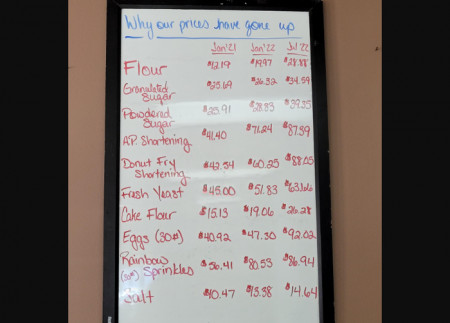 Why our prices have gone up
Jan'21 Jan'22 Jul '22
Flour $12.19 $19.97 $28.88
Granulated
Sugar $25.69 $26.32 $34.59
Powdered
Sugar $23.91 $28.83 $39.25
A.P. Shortening $41.40 $71.24 $87.59
Donut Fry
Shortening $42.54 $60.25 $88.05
Fresh Yeast $45.00 $51.83 $63.66
Cake Flour $15.13 $19.06 $26.28
Eggs (30#) $40.92 $47.30 $92.02
Rainbow
Sprinkles $56.41 $80.53 $86.94
Salt $10.47 $13.38 $14.64